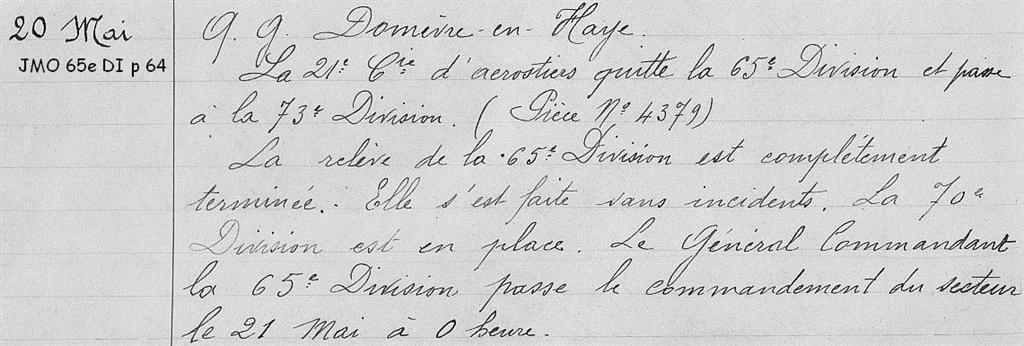 20 Mai
JMO 65e DI p 64
Q. G. Domèvre-en-Haye.
La 21e Cie d'aerostiers quitte la 65e Division et passe
à la 73e Division. ( Pièce No 4379)
La relève de la 65e Division est complétement
terminée. Elle s'est faite sans incidents. La 70e
Division est en place. Le Général Commandant
la 65e Division passe le commandement du secteur
le 21 Mai à 0 heure.